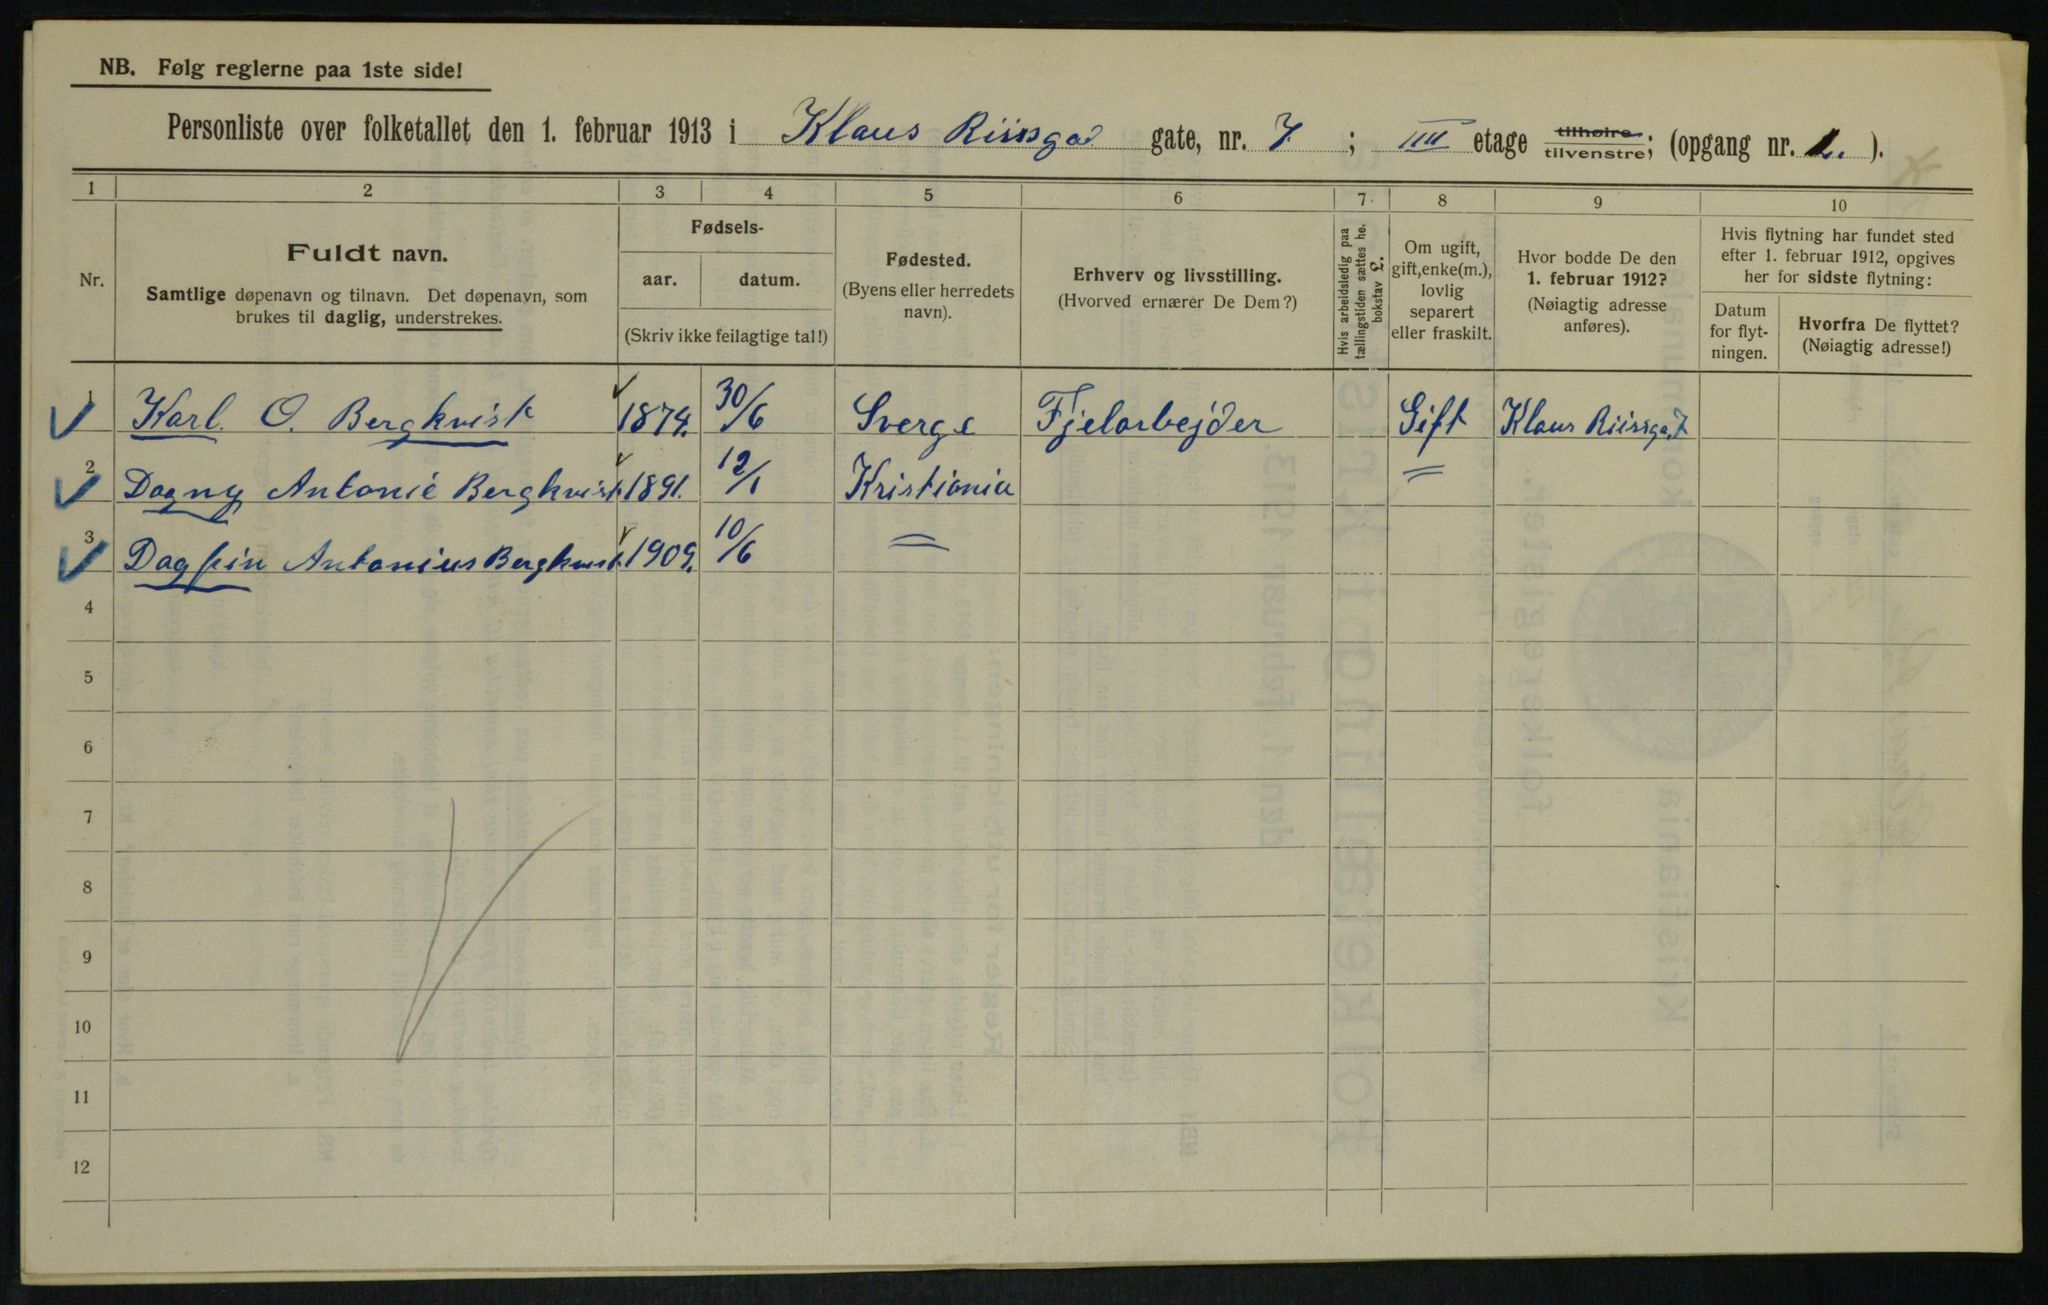 NB. Følg reglerne paa 1ste side!
Personliste over folketallet den 1. februar 1913 i Klaus Riissgad gate, nr. 7 ; IIII etage tilhøire tilvenstre; (opgang nr. 1. ).
1 2 3 4 5 6 7 8 9 10
Nr.
Fuldt navn.
Samtlige døpenavn og tilnavn. Det døpenavn, som
brukes til daglig, understrekes.
Fødsels-
aar. datum.
(Skriv ikke feilagtige tal!)
Fødested.
(Byens eller herredets
navn).
Erhverv og livsstilling.
(Hvorved ernærer De Dem?)
Hvis arbeidsledig paa
tællingstiden sættes he.
bokstav L.
Om ugift,
gift, enke(m.),
lovlig
separert
eller fraskilt.
Hvor bodde De den
1. februar 1912?
(Nøiagtig adresse
anføres).
Hvis flytning har fundet sted
efter 1. februar 1912, opgives
her for sidste flytning:
Datum
for flyt-
ningen.
Hvorfra De flyttet?
(Nøiagtig adresse!)
1 Karl. O. Bergkvist 1874. 30/6 Sverge Fjelarbejder Gift Klaus Riissga. 7
2 Dagny Antonie Bergkvist 1891. 12/1 Kristiania =
3 Dagfin Antonius Bergkvist 1909. 10/6 =
4
5
6
7
8
9
10
11
12